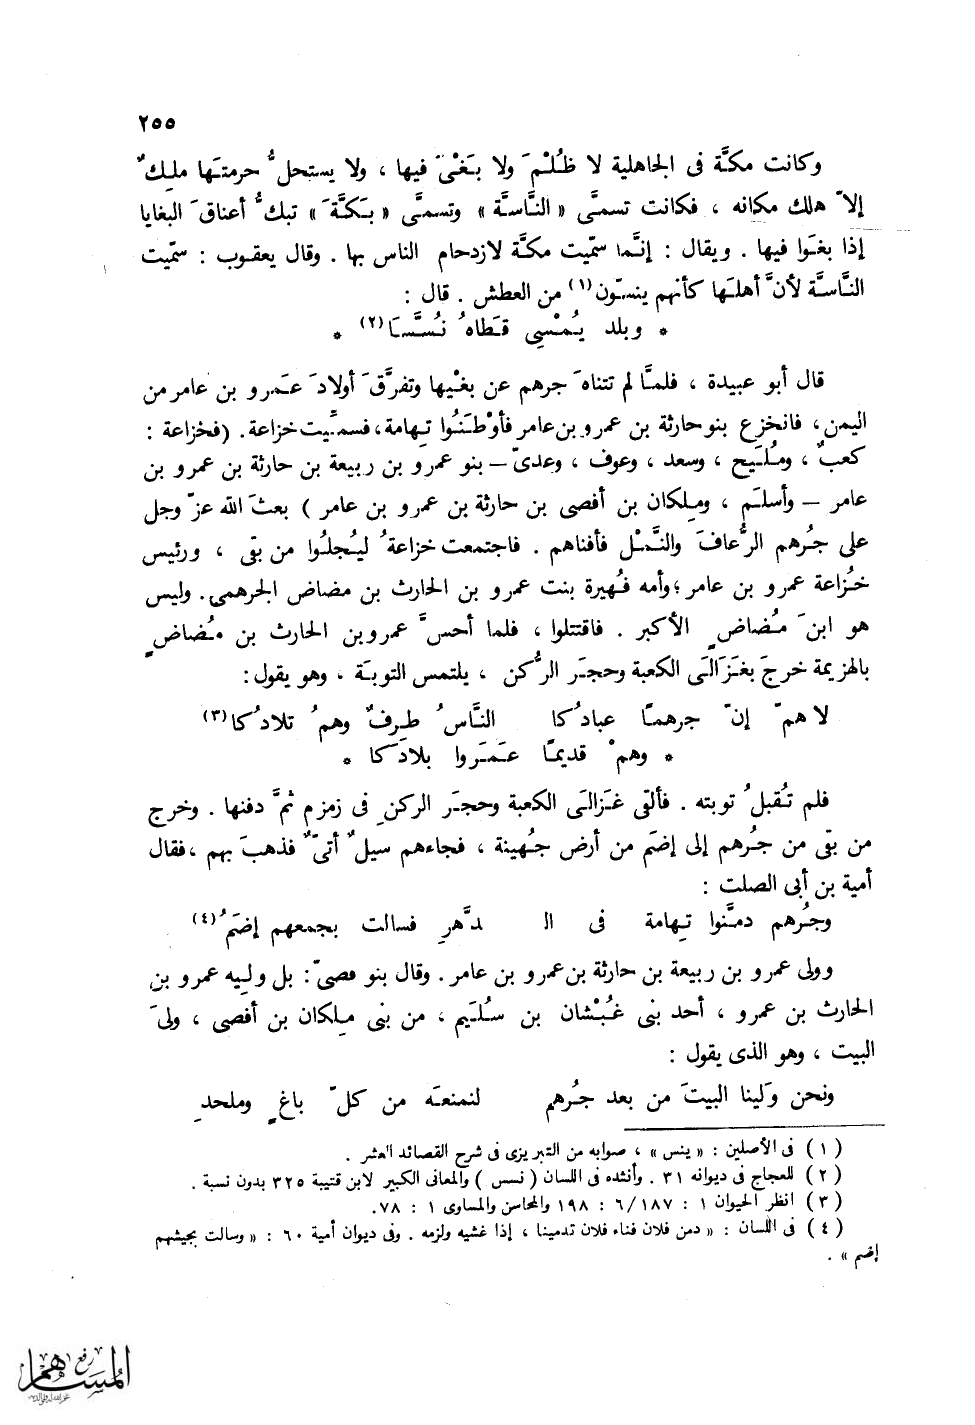 ٢٥٥
وكانت مكَّة فى الجاهلية لا ظُلْمَ ولا بَغْىَ فيها ، ولا يستحلُّ حرمتَها ملِكٌ
إلاّ هلك مكانه ، فكانت تسمَّى « النَّاسَّة » وتسمَّى « بَكَّةَ » تبكُّ أعناقَ البغايا
إذا بغَوا فيها . ويقال : إنَّما سمّيت مكَّة لازدحام الناس بها . وقال يعقوب : سمّيت
النَّاسَّة لأنَّ أهلَها كأنهم ينسّون(١) من العطش . قال :
* وبلد يُمْسِى قَطاهُ نُسَّسَا(٢) *
قال أبو عبيدة ، فلمَّا لم تتناهَ جرهم عن بغْيِها وتفرَّقَ أولادَ عَمرو بن عامر من
اليمن ، فانخزع بنو حارثة بن عمرو بن عامر فأوْطَنُوا تِهامة ، فسمِّيت خزاعة . (فخزاعة :
كعبٌ ، ومُلَيح ، وسعد ، وعوف ، وعدىّ – بنو عمرو بن ربيعة بن حارثة بن عمرو بن
عامر – وأسلَم ، ومِلكان بن أفصى بن حارثة بن عمرو بن عامر ) بعثَ الله عزّ وجل
على جُرهم الرُّعافَ والنَّمْل فأفناهم . فاجتمعت خزاعةُ ليُجلُوا من بقى ، ورئيس
خُزاعة عمرو بن عامر ؛ وأمه فُهيرة بنت عمرو بن الحارث بن مضاض الجرهمى . وليس
هو ابنَ مُضاضٍ الأكبر . فاقتتلوا ، فلما أحسَّ عمرو بن الحارث بن مُضاضٍ
بالهزيمة خرجَ بغَزَالَى الكعبة وحجَر الرُّكن ، يلتمس التوبَة ، وهو يقول :
لا همّ إنّ جرهمًا عبادُكا النَّاسُ طِرفٌ وهمُ تلادُكا(٣)
* وهمْ قديمًا عَمَروا بلادَكا *
فلم تُقبلُ توبته . فألقى غَزالَى الكعبة وحجَر الركنِ فى زمزم ثمَّ دفنها . وخرج
من بقى من جُرهم إلى إضَم من أرض جُهينة ، فجاءهم سيلٌ أتىٌّ فذهبَ بهم ، فقال
أمية بن أبى الصلت :
وجُرهم دمَّنوا تِهامة فى الـ ـدَّهرِ فسالت بجمعهم إضَمُ(٤)
وولى عمرو بن ربيعة بن حارثة بن عمرو بن عامر . وقال بنو قصىّ : بل ولِيه عمرو بن
الحارث بن عمرو ، أحد بنى غُبْشان بن سُلَيم ، من بنى مِلكان بن أفصى ، ولىَ
البيت ، وهو الذى يقول :
ونحن وَلينا البيتَ من بعد جُرهم لنمنعَه من كلّ باغٍ وملحدِ
( ١ ) فى الأصلين : « ينس » ، صوابه من التبريزى فى شرح القصائد العشر .
( ٢ ) للعجاج فى ديوانه ٣١ . وأنشده فى اللسان ( نسس ) والمعانى الكبير لابن قتيبة ٣٢٥ بدون نسبة .
( ٣ ) انظر الحيوان ١ : ١٨٧ / ٦ : ١٩٨ والمحاسن والمساوى ١ : ٧٨ .
( ٤ ) فى اللسان : « دمن فلان فناء فلان تدمينا ، إذا غشيه ولزمه . وفى ديوان أمية ٦٠ : « وسالت بجيشهم
إضم » .
رفع
المساهم